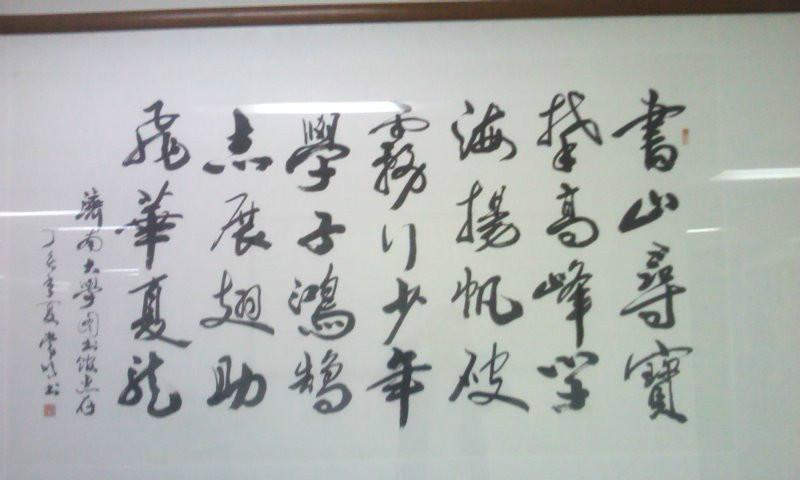 書山尋寶
攀高峰學
海揚帆破
霧行少年
學子鴻鵠
志展翅助
飛華夏龍
濟南大學圖書館惠存
丁亥季夏